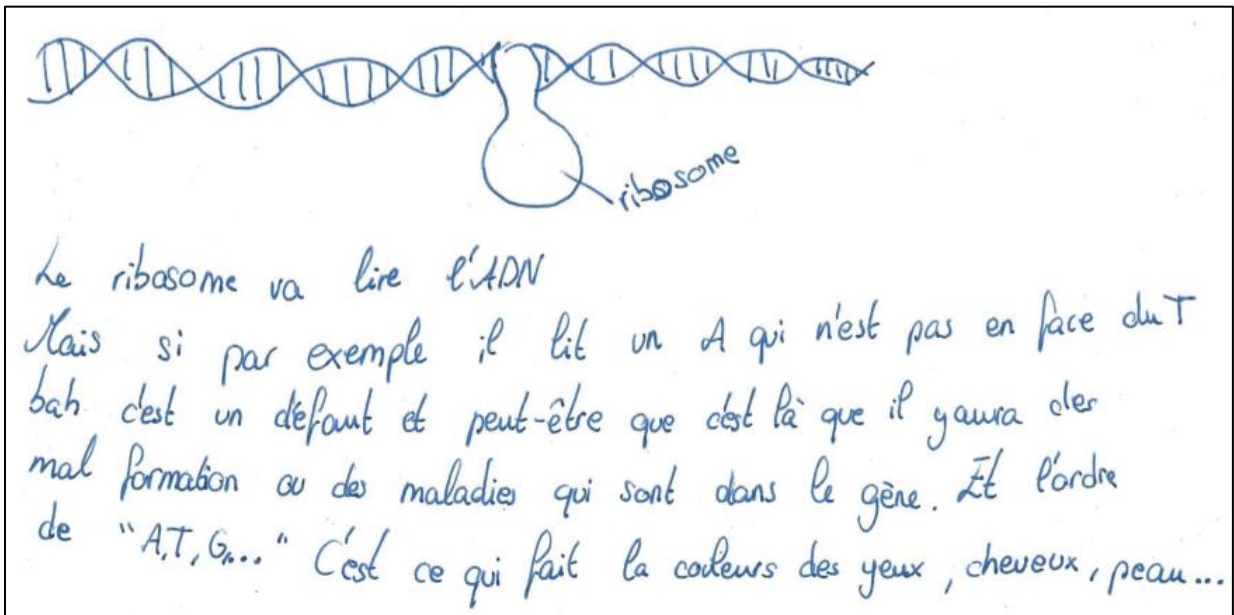 ribosome
Le ribosome va lire l'ADN
Mais si par exemple il lit un A qui n'est pas en face du T
bah c'est un défaut et peut-être que c'est là que il yaura des
mal formation ou des maladies qui sont dans le gène. Et l'ordre
de "A,T,G,..." C'est ce qui fait la couleurs des yeux, cheveux, peau...